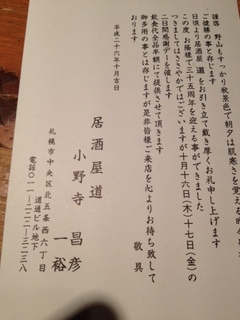 謹啓 野山もすっかり秋景色で朝夕は肌寒さを覚える
ご健勝の事と存じます
日頃より居酒屋 道 をお引き立て戴き厚くお礼申し上げます
この度 お陰様で三十五周年を迎える事ができました
つきましてはささやかではございますが十月十六日(木)十七日(金)の
二日間感謝デーを催します
飲食代全品半額にて提供させて頂きます
御多用の事とは存じますが是非皆様ご来店を心よりお待ち致して
おります
敬具
平成二十六年十月吉日
居酒屋道
小野寺 昌彦
一裕
札幌市中央区北五条西六丁目
道通ビル地下
電話〇一一-二二一-三二三八